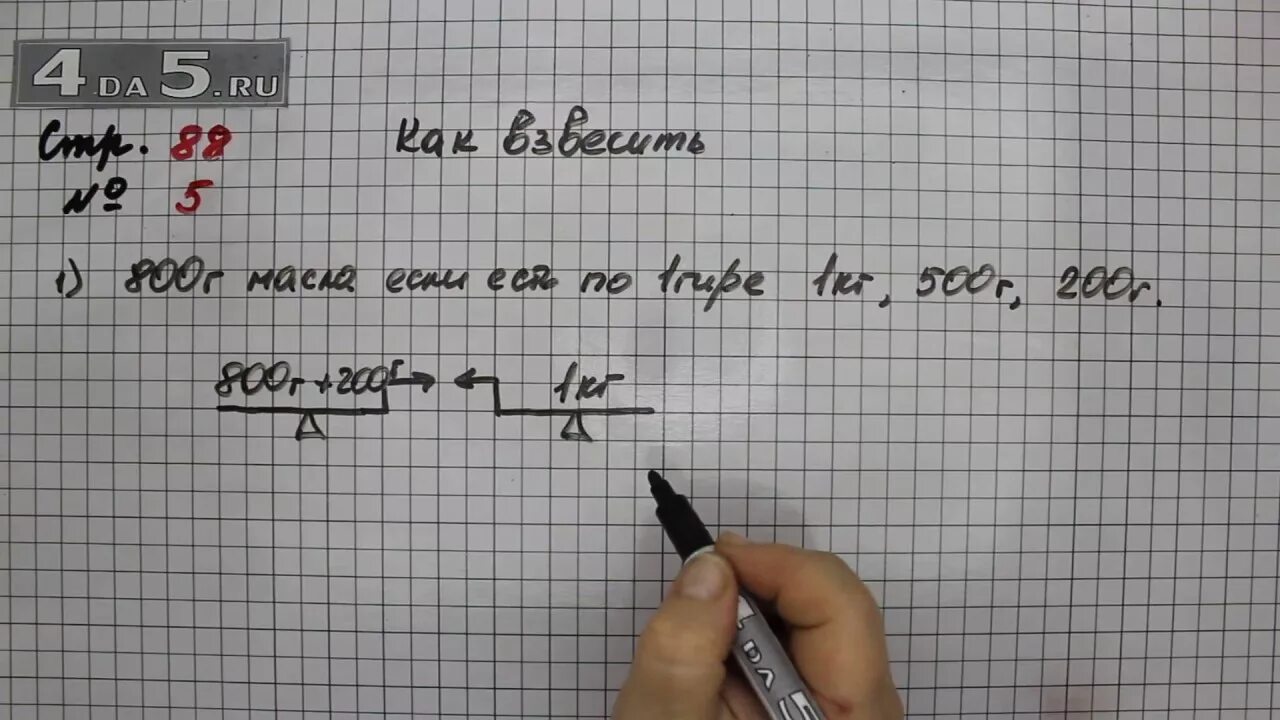 4 DA 5.RU
Стр. 88
Как взвесить
№ 5
1) 800г масла если есть по 1гире 1кг, 500г, 200г.
800г+200г 1кг
DA 5